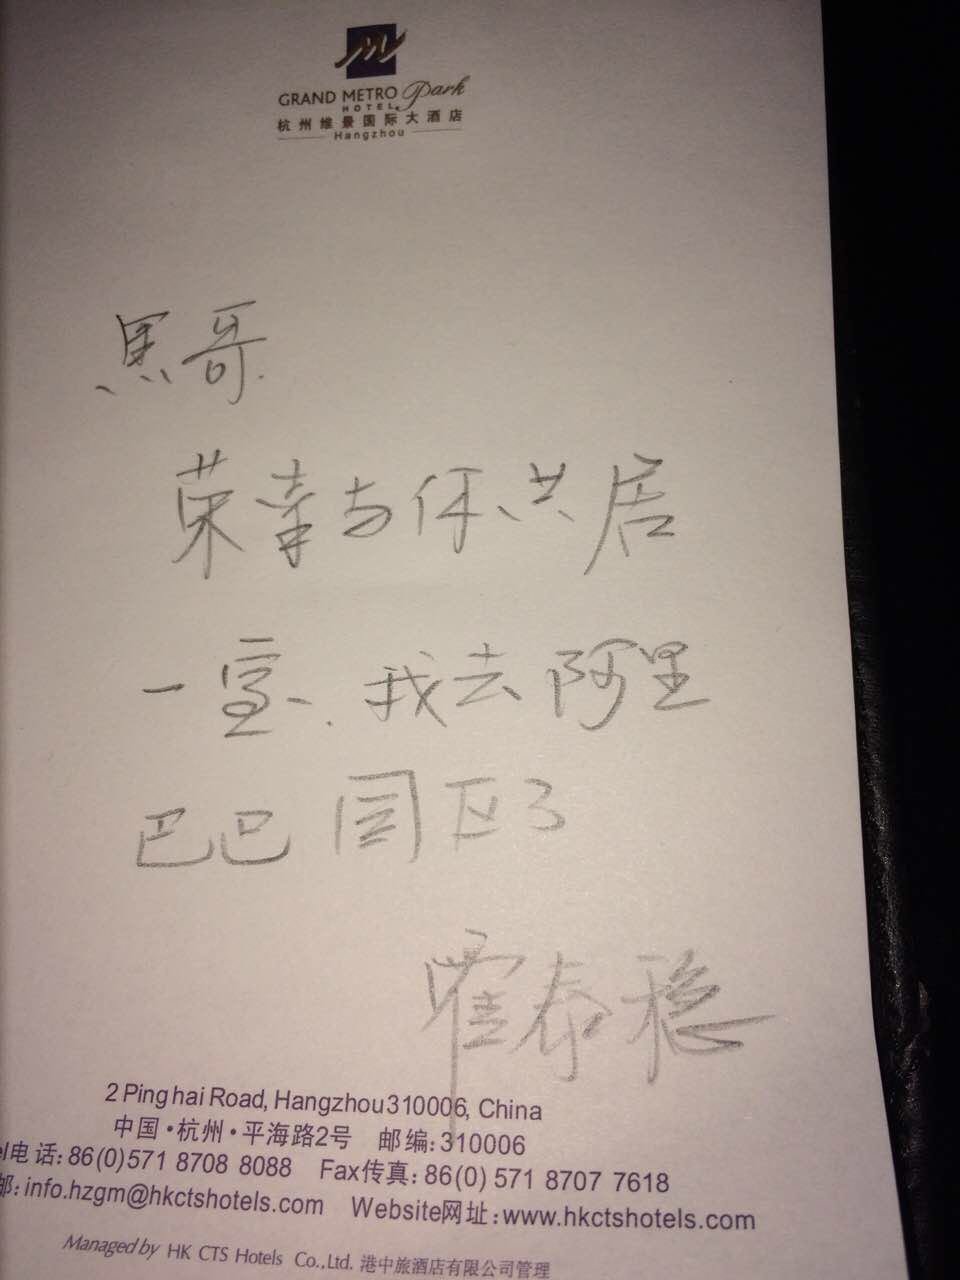 GRAND METRO Park
HOTEL
杭州维景国际大酒店
Hangzhou
馬哥.
荣幸与你共居
一室、我去阿里
巴巴园区了
霍泰稳
2 Pinghai Road, Hangzhou310006, China
中国·杭州·平海路2号 邮编: 310006
el电话: 86(0)571 8708 8088 Fax传真: 86(0) 571 8707 7618
邮: info.hzgm@hkctshotels.com Website网址: www.hkctshotels.com
Managed by HK CTS Hotels Co.,Ltd. 港中旅酒店有限公司管理